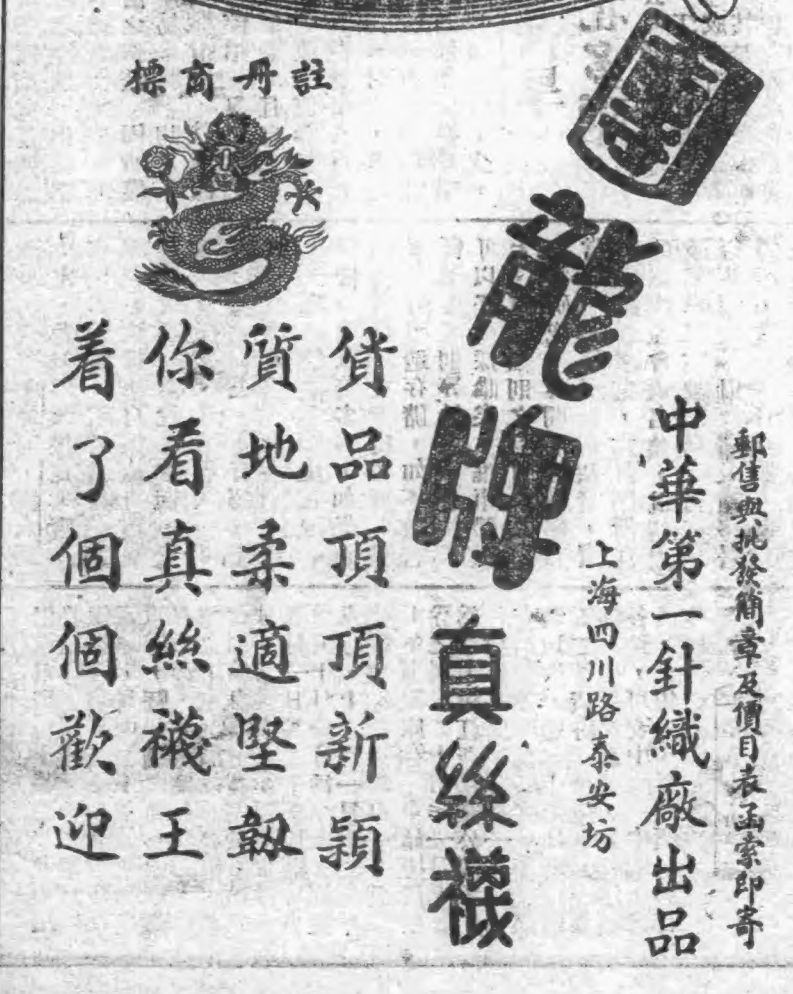 郵售與批發簡章及價目表函索即寄
中華第一針織廠出品
上海四川路泰安坊
團龍牌真絲襪
註册商標
貨品頂頂新穎
質地柔適堅韌
你看真絲襪王
着了個個歡迎